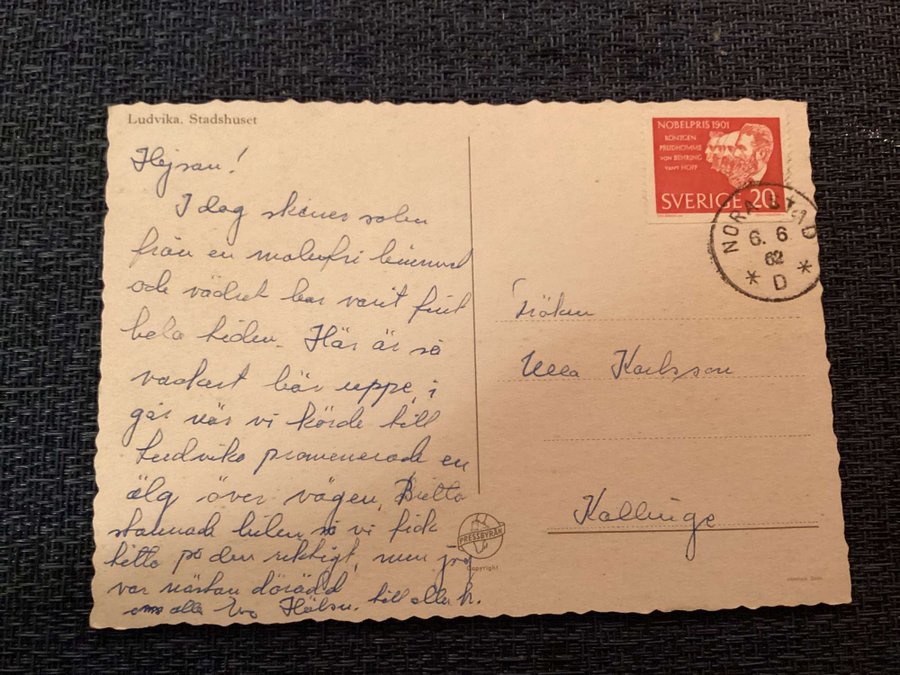 Ludvika. Stadshuset
Hejsan!
I dag skiner solen
från en molnfri himmel
och vädret har varit fint
hela tiden. Här är så
vackert här uppe, i
går när vi körde till
Ludvika promenerade en
älg över vägen,
stannade bilen så vi fick
titta på den riktigt, men jag
var nästan dörädd
alla Hälsn. till alla h.
NOBELPRIS 1901
RÖNTGEN
PRUDHOMME
VON BEHRING
VAN'T HOFF
SVERIGE 20
NORA STAD
6. 6
62
* D *
Fröken
Ulla Karlsson
Kallinge
PRESSBYRÅN
Copyright